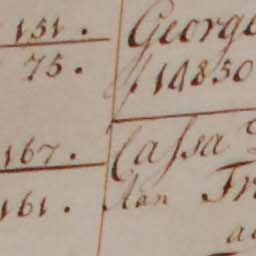 151. George
75. ƒ 14850
167. Cassa
161. Aan Fr